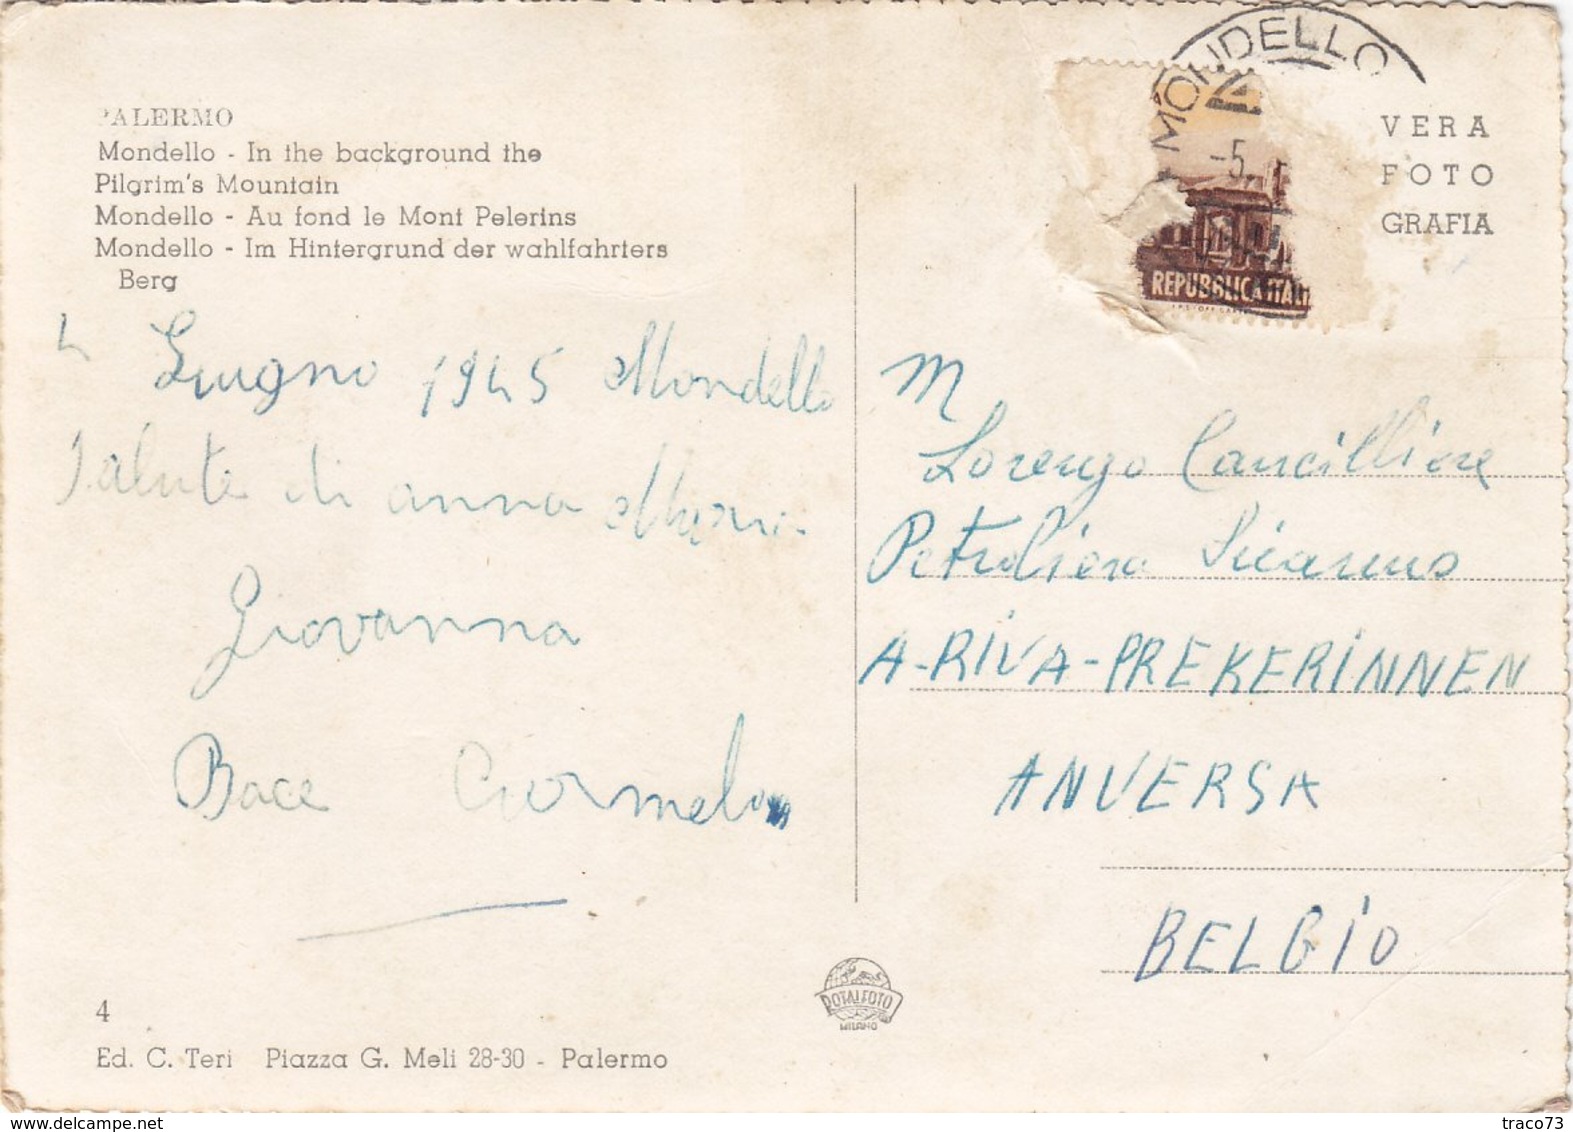 PALERMO
Mondello - In the background the
Pilgrim's Mountain
Mondello - Au fond le Mont Pelerins
Mondello - Im Hintergrund der wahlfahrters
Berg
4 Giugno 1945 Mondello
Salute di anna Maria
Giovanna
Bace Carmela
4
Ed. C. Teri Piazza G. Meli 28-30 - Palermo
ROTALFOTO
MILANO
MONDELLO
-5.
REPUBBLICA ITALI
VERA
FOTO
GRAFIA
M
Lorenzo Cancilliere
Petroliera Sicanus
A-RIVA-PREKERINNEN
ANVERSA
BELGIO
traco73